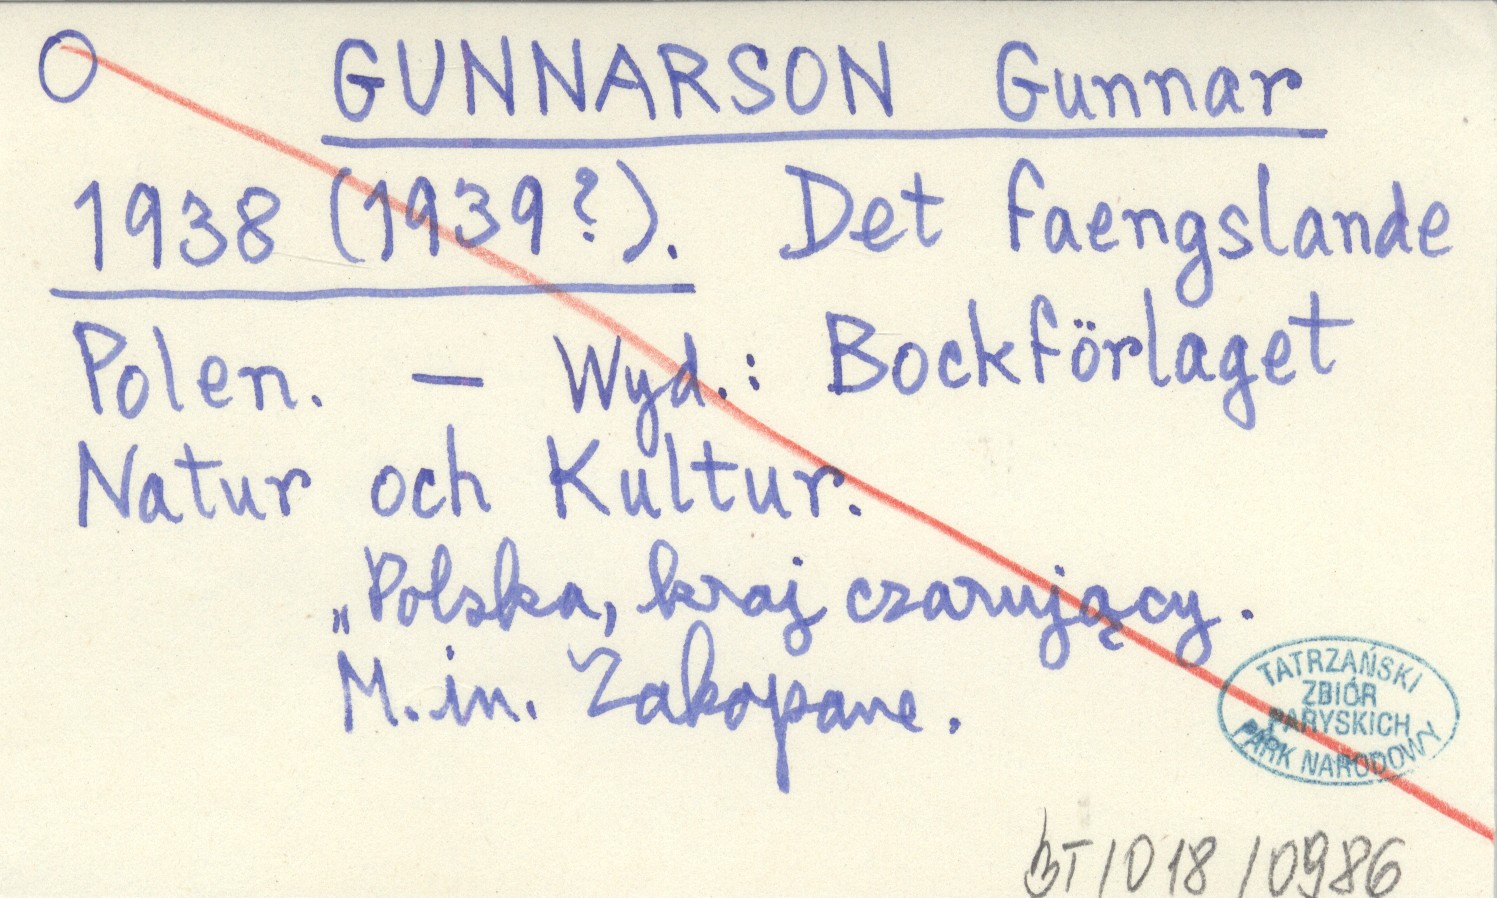 O GUNNARSON Gunnar
1938 (1939?). Det faengslande
Polen. — Wyd.: Bockförlaget
Natur och Kultur.
„Polska, kraj czarujący.
M.in. Zakopane.
TATRZAŃSKI
ZBIÓR
PARYSKICH
PARK NARODOWY
BT/018/0986